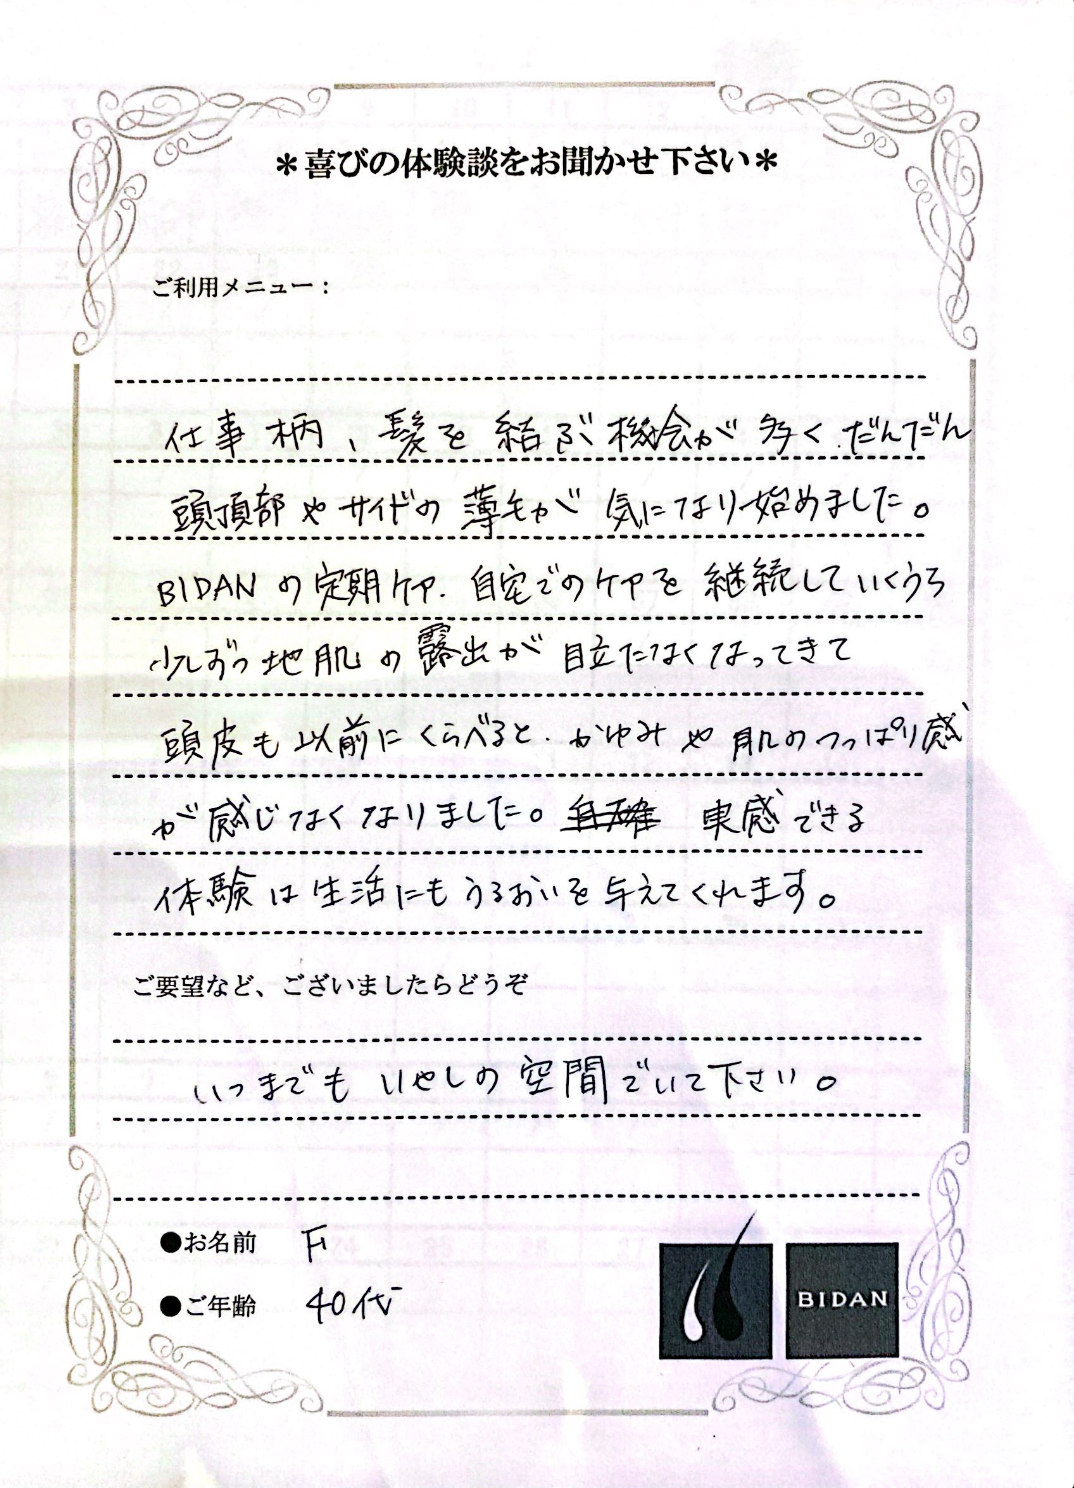 ＊喜びの体験談をお聞かせ下さい＊
ご利用メニュー：
仕事柄、髪を結ぶ機会が多く、だんだん
頭頂部やサイドの薄毛が気になり始めました。
BIDANの定期ケア、自宅でのケアを継続していくうち
少しずつ地肌の露出が目立たなくなってきて
頭皮も以前にくらべると、かゆみや肌のつっぱり感
が感じなくなりました。実感できる
体験は生活にもうるおいを与えてくれます。
ご要望など、ございましたらどうぞ
いつまでもいやしの空間でいて下さい。
●お名前
●ご年齢 40代
BIDAN